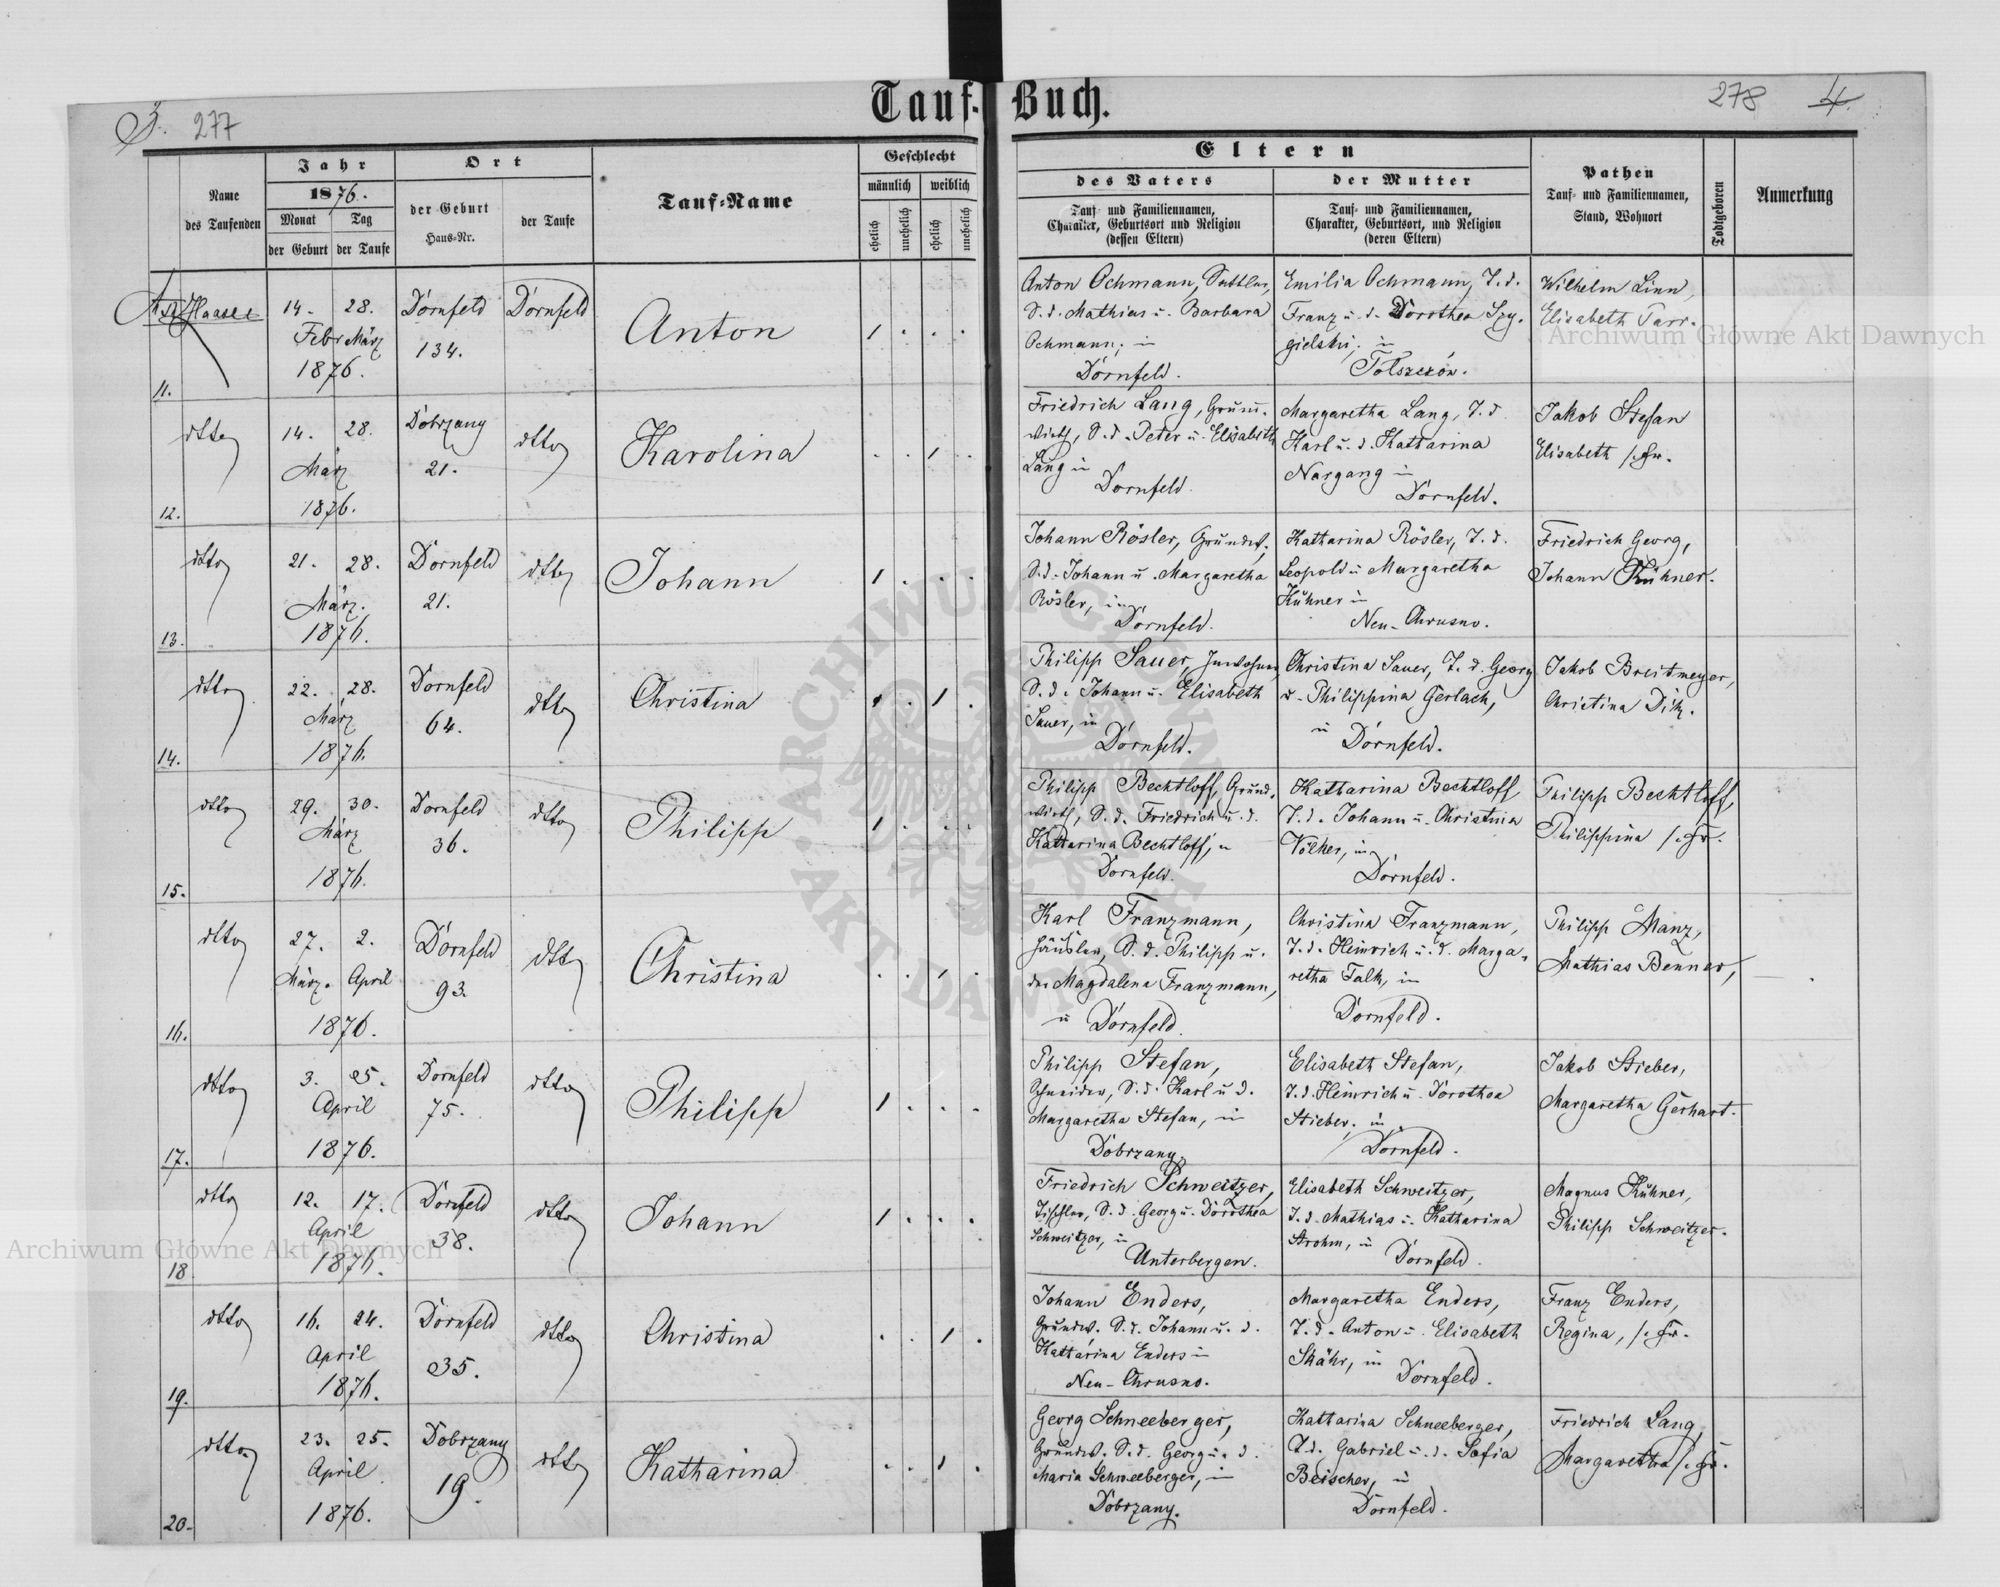 3. 277
Tauf-Buch.
278 4.
Name
des Taufenden
Jahr
1876.
Monat Tag
der Geburt der Taufe
Ort
der Geburt
Haus-Nr.
der Taufe
Tauf-Name
Geschlecht
männlich weiblich
ehelich unehelich ehelich unehelich
Eltern
des Vaters
Tauf- und Familiennamen,
Charakter, Geburtsort und Religion
(dessen Eltern)
der Mutter
Tauf- und Familiennamen,
Charakter, Geburtsort, und Religion
(deren Eltern)
Pathen
Tauf- und Familiennamen,
Stand, Wohnort
Todtgeboren
Anmerkung
11.
Haase
14. 28.
Febr März
1876.
Dornfeld
134.
Dornfeld
Anton
1 . . .
Anton Ochmann, Sattler,
S. d. Mathias u. Barbara
Ochmann, in
Dornfeld.
Emilia Ochmann, T. d.
Franz u. d. Dorothea Szy-
gielski, in
Tolszczów.
Wilhelm Linn,
Elisabeth Parr.
12.
dtto
14. 28.
März
1876.
Dobrzany
21.
dtto
Karolina
. . 1 .
Friedrich Lang, Grund-
wirth, S. d. Peter u. Elisabeth
Lang in
Dornfeld.
Margaretha Lang, T. d.
Karl u. d. Katharina
Nargang in
Dornfeld.
Jakob Stefan
Elisabeth s. Fr.
13.
dtto
21. 28.
März.
1876.
Dornfeld
21.
dtto
Johann
1 . . .
Johann Rösler, Grundw.,
S. d. Johann u. Margaretha
Rösler, in
Dornfeld.
Katharina Rösler, T. d.
Leopold u Margaretha
Kühner in
Neu-Chrusno.
Friedrich Georg,
Johann Kühner.
14.
dtto
22. 28.
März
1876.
Dornfeld
64.
dtto
Christina
. . 1 .
Philipp Sauer, Inwohner,
S. d. Johann u. Elisabeth
Sauer, in
Dornfeld.
Christina Sauer, T. d. Georg
u. Philippina Gerlach,
in Dornfeld.
Jakob Breitmeyer,
Christina Ditz.
15.
dtto
29. 30.
März
1876.
Dornfeld
36.
dtto
Philipp
1 . . .
Philipp Bechtloff, Grund-
wirth, S. d. Friedrich u. d.
Katharina Bechtloff, in
Dornfeld.
Katharina Bechtloff
T. d. Johann u. Christina
Völker, in
Dornfeld.
Philipp Bechtloff,
Philippina s. Fr.
16.
dtto
27. 2.
März. April
1876.
Dornfeld
93.
dtto
Christina
. . 1 .
Karl Franzmann,
Häusler, S. d. Philipp u.
der Magdalena Franzmann,
in Dornfeld.
Christina Franzmann,
T. d. Heinrich u. d. Marga-
retha Falk, in
Dornfeld.
Philipp Manz,
Mathias Benner,
17.
dtto
3. 25.
April
1876.
Dornfeld
75.
dtto
Philipp
1 . . .
Philipp Stefan,
Schneider, S. d. Karl u d.
Margaretha Stefan, in
Dobrzany.
Elisabeth Stefan,
T. d. Heinrich u. Dorothea
Stieber, in
Dornfeld.
Jakob Stieber,
Margaretha Gerhart.
18
dtto
12. 17.
April
1876.
Dornfeld
38.
dtto
Johann
1 . . .
Friedrich Schweitzer,
Tischler, S. d. Georg u. Dorothea
Schweitzer, in
Unterbergen.
Elisabeth Schweitzer,
T. d. Mathias u. Katharina
Strohm, in Dornfeld.
Magnus Kühner,
Philipp Schweitzer.
19.
dtto
16. 24.
April
1876.
Dornfeld
35.
dtto
Christina
. . 1 .
Johann Enders,
Grundw. S. d. Johann u. d.
Katharina Enders in
Neu-Chrusno.
Margaretha Enders,
T. d. Anton u. Elisabeth
Skähr, in Dornfeld.
Franz Enders,
Regina, s. Fr.
20.
dtto
23. 25.
April
1876.
Dobrzany
19.
dtto
Katharina
. . 1 .
Georg Schneeberger,
Grundw. S. d. Georg u. d.
Maria Schneeberger, in
Dobrzany.
Katharina Schneeberger,
T. d. Gabriel u. d. Sofia
Beischer, in
Dornfeld.
Friedrich Lang,
Margaretha s. Fr.
Archiwum Główne Akt Dawnych
Archiwum Główne Akt Dawnych
ARCHIWUM GŁÓWNE
AKT DAWNYCH